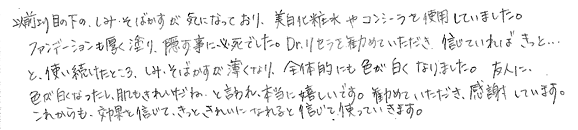 以前より目の下の、しみ・そばかすが気になっており、美白化粧水やコンシーラを使用していました。
ファンデーションも厚く塗り、隠す事に必死でした。Dr.リセラを勧めていただき、信じていればきっと…
と、使い続けたところ、しみ・そばかすが薄くなり、全体的にも色が白くなりました。友人に、
色が白くなったし、肌もきれいだね、と言われ、本当に嬉しいです。勧めていただき、感謝しています。
これからも、効果を信じて、きっと、きれいになれると信じて、使っていきます。